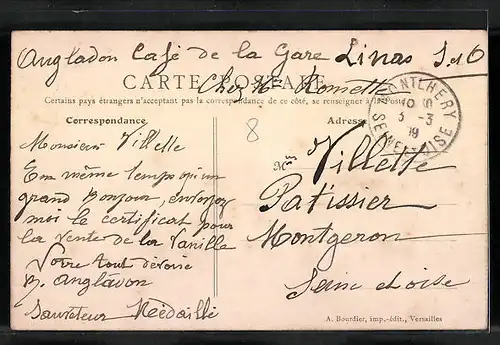 Angladon Café de la Gare Linas S et O
CARTE POSTALE
Chez Mr
Certains pays étrangers n'acceptant pas la correspondance de ce côté, se renseigner à la Poste
MONTLHÉRY
3 -3
19
SEINE-ET-OISE
Correspondance
Adresse
8
Monsieur Villette
En même temps qu'un
grand Bonjour, envoyez
moi le certificat pour
la vente de la Vanille
Votre tout dévoué
Angladon
Sauveteur Médaillé
M Villette
Patissier
Montgeron
Seine et oise
A. Bourdier, imp.-édit., Versailles